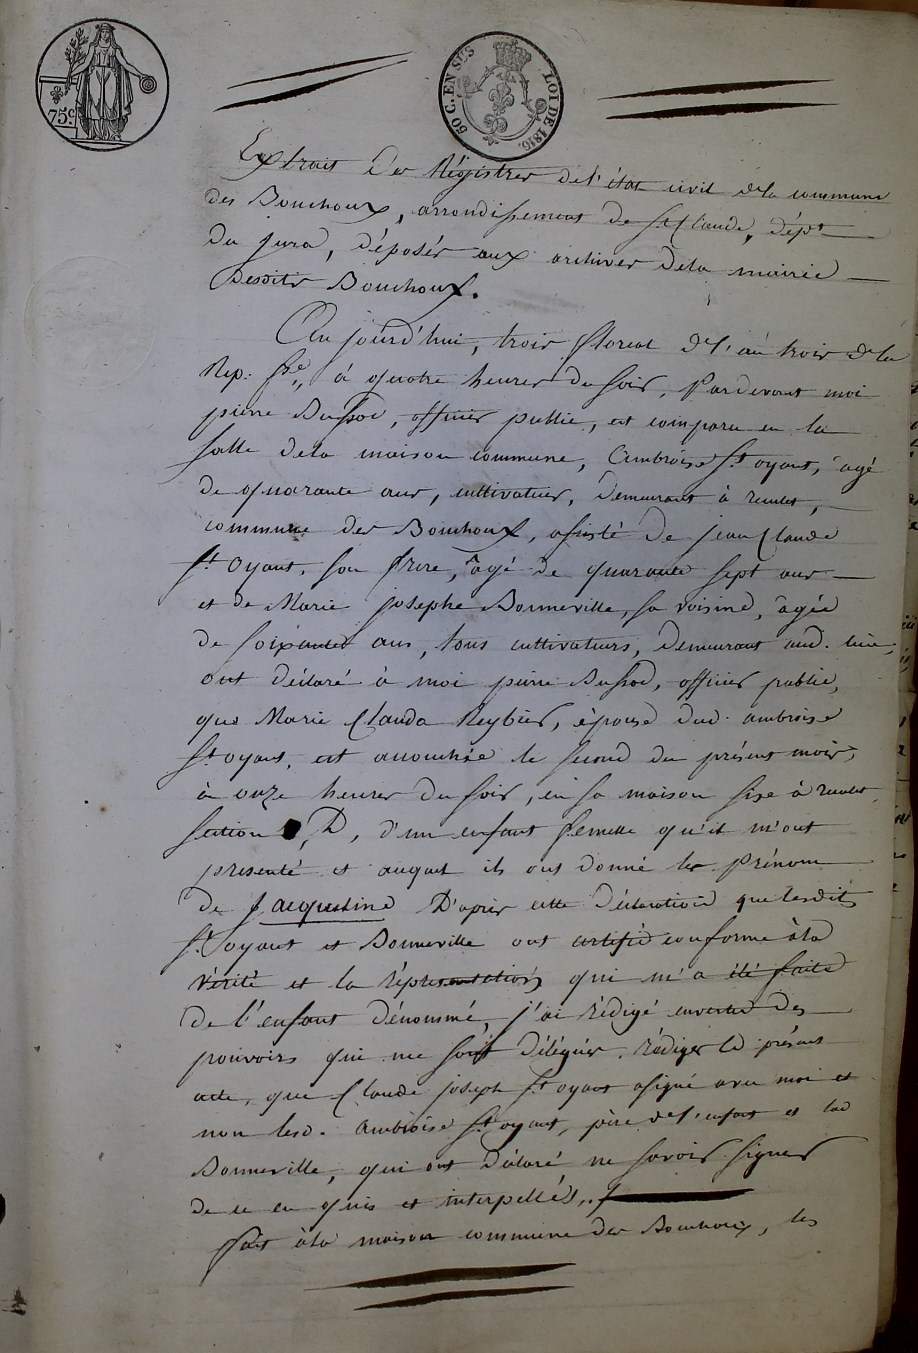 75.c
50 C. EN SUS
LOI DE 1816.
Extrait des Régistres de l'état civil de la commune
des Bouchoux, arrondissement de St Claude, dépt
du jura, déposés aux archives de la mairie
desdits Bouchoux.
Aujourd'hui, trois floreal de l'an trois de la
Rep. fse, à quatre heures du soir, Pardevant moi
pierre Bussod, officier public, est comparu en la
salle de la maison commune, Ambroise St oyant, agé
de quarante ans, cultivateur, demeurant à
commune des Bouchoux, assisté de jean Claude
St Oyant, son frere, âgé de quarante sept ans
et de Marie josephe Bonneville, sa voisine, âgée
de soixante ans, tous cultivateurs, demeurant aud. lieu,
ont déclaré à moi pierre Bussod, officier public,
que Marie Clauda Reybier, épouse dud. ambroise
St oyant, est accouchée le second du présent mois,
à onze heures du soir, en sa maison sise à
section D, d'un enfant femelle qu'il m'ont
presenté et auquel ils ont donné les Prénom
de Jacqueline D'après cette déclaration que lesdits
St oyant et Bonneville ont certifié conforme à la
vérité et la réprésentation qui m'a été faite
de l'enfant dénommé, j'ai rédigé envertu des
pouvoirs qui me sont délégués, rédiger le présent
acte, que Claude joseph St oyant a signé avec moi et
non lesd. ambroise St oyant, père de l'enfant et lad
Bonneville, qui ont déclaré ne savoir signer
de ce enquis et interpellés./
fait à la maison commune des Bouchoux, les